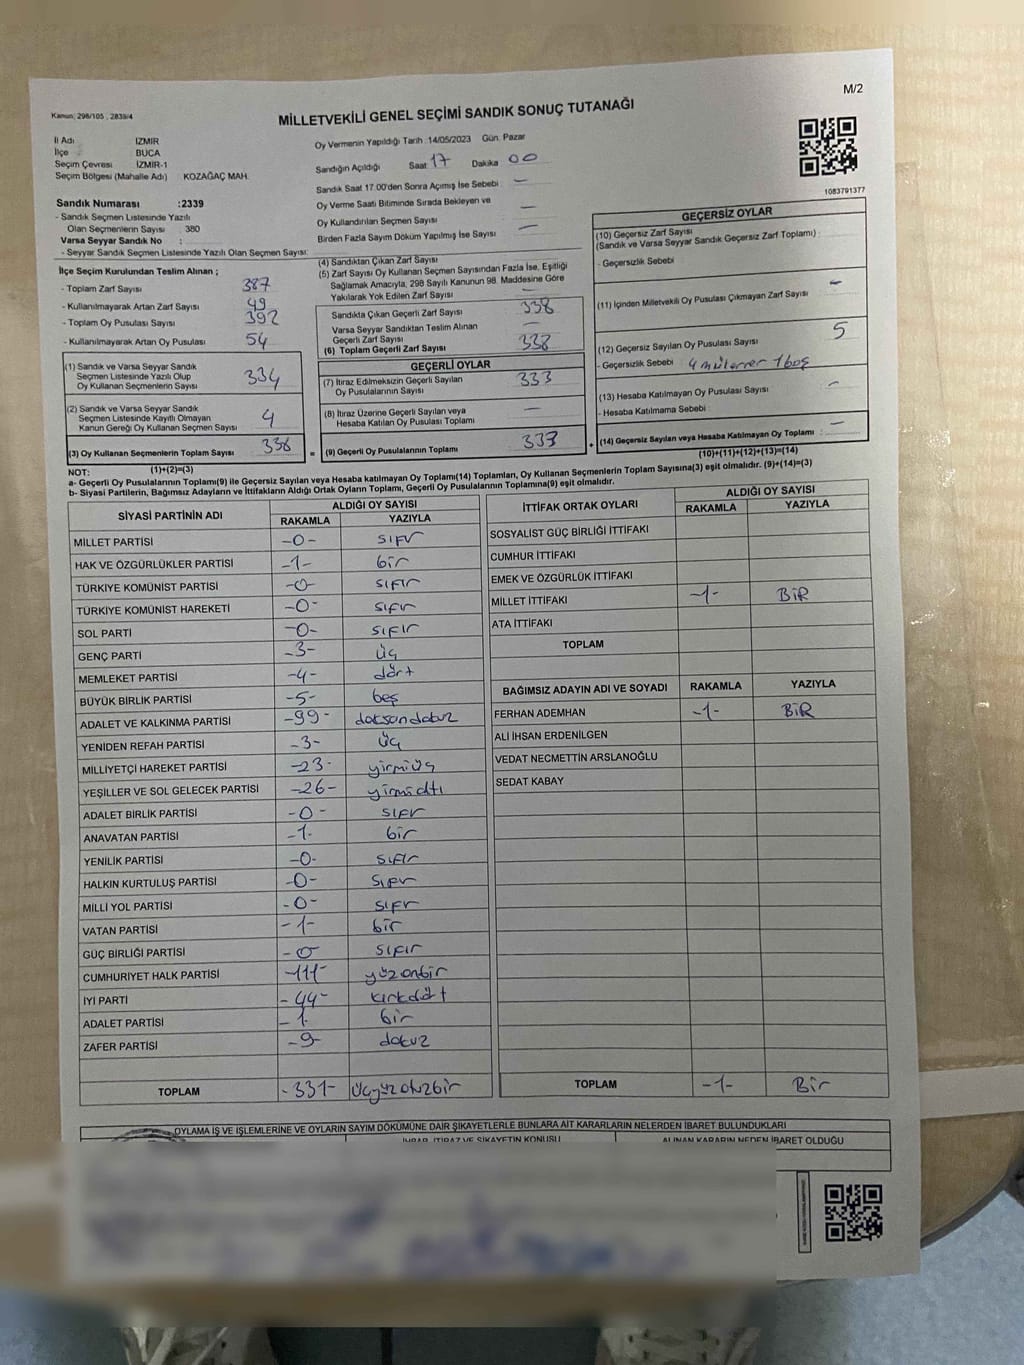 M/2
Kanun: 298/105 , 2839/4
MİLLETVEKİLİ GENEL SEÇİMİ SANDIK SONUÇ TUTANAĞI
İl Adı İZMİR
İlçe BUCA
Seçim Çevresi İZMİR-1
Seçim Bölgesi (Mahalle Adı) KOZAĞAÇ MAH.
Oy Vermenin Yapıldığı Tarih :14/05/2023 Gün. Pazar
Sandığın Açıldığı Saat 17 Dakika 00
Sandık Saat 17.00'den Sonra Açımış İse Sebebi : —
Oy Verme Saati Bitiminde Sırada Bekleyen ve
Oy Kullandırılan Seçmen Sayısı —
Birden Fazla Sayım Döküm Yapılmış İse Sayısı —
1083791377
Sandık Numarası :2339
- Sandık Seçmen Listesinde Yazılı
Olan Seçmenlerin Sayısı 380
Varsa Seyyar Sandık No :
- Seyyar Sandık Seçmen Listesinde Yazılı Olan Seçmen Sayısı:
İlçe Seçim Kurulundan Teslim Alınan ;
- Toplam Zarf Sayısı 387
- Kullanılmayarak Artan Zarf Sayısı 49
- Toplam Oy Pusulası Sayısı 392
- Kullanılmayarak Artan Oy Pusulası 54
(1) Sandık ve Varsa Seyyar Sandık
Seçmen Listesinde Yazılı Olup
Oy Kullanan Seçmenlerin Sayısı 334
(2) Sandık ve Varsa Seyyar Sandık
Seçmen Listesinde Kayıtlı Olmayan
Kanun Gereği Oy Kullanan Seçmen Sayısı 4
(3) Oy Kullanan Seçmenlerin Toplam Sayısı 338
(1)+(2)=(3)
(4) Sandıktan Çıkan Zarf Sayısı
(5) Zarf Sayısı Oy Kullanan Seçmen Sayısından Fazla İse, Eşitliği
Sağlamak Amacıyla, 298 Sayılı Kanunun 98. Maddesine Göre
Yakılarak Yok Edilen Zarf Sayısı —
Sandıkta Çıkan Geçerli Zarf Sayısı 338
Varsa Seyyar Sandıktan Teslim Alınan
Geçerli Zarf Sayısı —
(6) Toplam Geçerli Zarf Sayısı 338
GEÇERLİ OYLAR
(7) İtiraz Edilmeksizin Geçerli Sayılan
Oy Pusulalarının Sayısı 333
(8) İtiraz Üzerine Geçerli Sayılan veya
Hesaba Katılan Oy Pusulası Toplamı —
= (9) Geçerli Oy Pusulalarının Toplamı 333 +
GEÇERSİZ OYLAR
(10) Geçersiz Zarf Sayısı
(Sandık ve Varsa Seyyar Sandık Geçersiz Zarf Toplamı) :
- Geçersizlik Sebebi : —
(11) İçinden Milletvekili Oy Pusulası Çıkmayan Zarf Sayısı —
(12) Geçersiz Sayılan Oy Pusulası Sayısı 5
- Geçersizlik Sebebi : 1 boş
(13) Hesaba Katılmayan Oy Pusulası Sayısı —
- Hesaba Katılmama Sebebi :
(14) Geçersiz Sayılan veya Hesaba Katılmayan Oy Toplamı : —
(10)+(11)+(12)+(13)=(14)
NOT:
a- Geçerli Oy Pusulalarının Toplamı(9) ile Geçersiz Sayılan veya Hesaba katılmayan Oy Toplamı(14) Toplamları, Oy Kullanan Seçmenlerin Toplam Sayısına(3) eşit olmalıdır. (9)+(14)=(3)
b- Siyasi Partilerin, Bağımsız Adayların ve İttifakların Aldığı Ortak Oyların Toplamı, Geçerli Oy Pusulalarının Toplamına(9) eşit olmalıdır.
SİYASİ PARTİNİN ADI ALDIĞI OY SAYISI
RAKAMLA YAZIYLA
MİLLET PARTİSİ -0- sıfır
HAK VE ÖZGÜRLÜKLER PARTİSİ -1- bir
TÜRKİYE KOMÜNİST PARTİSİ -0- sıfır
TÜRKİYE KOMÜNİST HAREKETİ -0- sıfır
SOL PARTİ -0- sıfır
GENÇ PARTİ -3- üç
MEMLEKET PARTİSİ -4- dört
BÜYÜK BİRLİK PARTİSİ -5- beş
ADALET VE KALKINMA PARTİSİ -99- doksandokuz
YENİDEN REFAH PARTİSİ -3- üç
MİLLİYETÇİ HAREKET PARTİSİ -23- yirmiüç
YEŞİLLER VE SOL GELECEK PARTİSİ -26- yirmialtı
ADALET BİRLİK PARTİSİ -0- sıfır
ANAVATAN PARTİSİ -1- bir
YENİLİK PARTİSİ -0- sıfır
HALKIN KURTULUŞ PARTİSİ -0- sıfır
MİLLİ YOL PARTİSİ -0- sıfır
VATAN PARTİSİ -1- bir
GÜÇ BİRLİĞİ PARTİSİ -0 sıfır
CUMHURİYET HALK PARTİSİ -111- yüzonbir
İYİ PARTİ -44- kırkdört
ADALET PARTİSİ -1- bir
ZAFER PARTİSİ -9- dokuz
TOPLAM -331- üçyüzotuzbir
İTTİFAK ORTAK OYLARI ALDIĞI OY SAYISI
RAKAMLA YAZIYLA
SOSYALİST GÜÇ BİRLİĞİ İTTİFAKI
CUMHUR İTTİFAKI
EMEK VE ÖZGÜRLÜK İTTİFAKI
MİLLET İTTİFAKI -1- BİR
ATA İTTİFAKI
TOPLAM
BAĞIMSIZ ADAYIN ADI VE SOYADI RAKAMLA YAZIYLA
FERHAN ADEMHAN -1- BİR
ALİ İHSAN ERDENİLGEN
VEDAT NECMETTİN ARSLANOĞLU
SEDAT KABAY
TOPLAM -1- Bir
OYLAMA İŞ VE İŞLEMLERİNE VE OYLARIN SAYIM DÖKÜMÜNE DAİR ŞİKAYETLERLE BUNLARA AİT KARARLARIN NELERDEN İBARET BULUNDUKLARI
İHBAR, İTİRAZ VE ŞİKAYETİN KONUSU ALINAN KARARIN NEDEN İBARET OLDUĞU